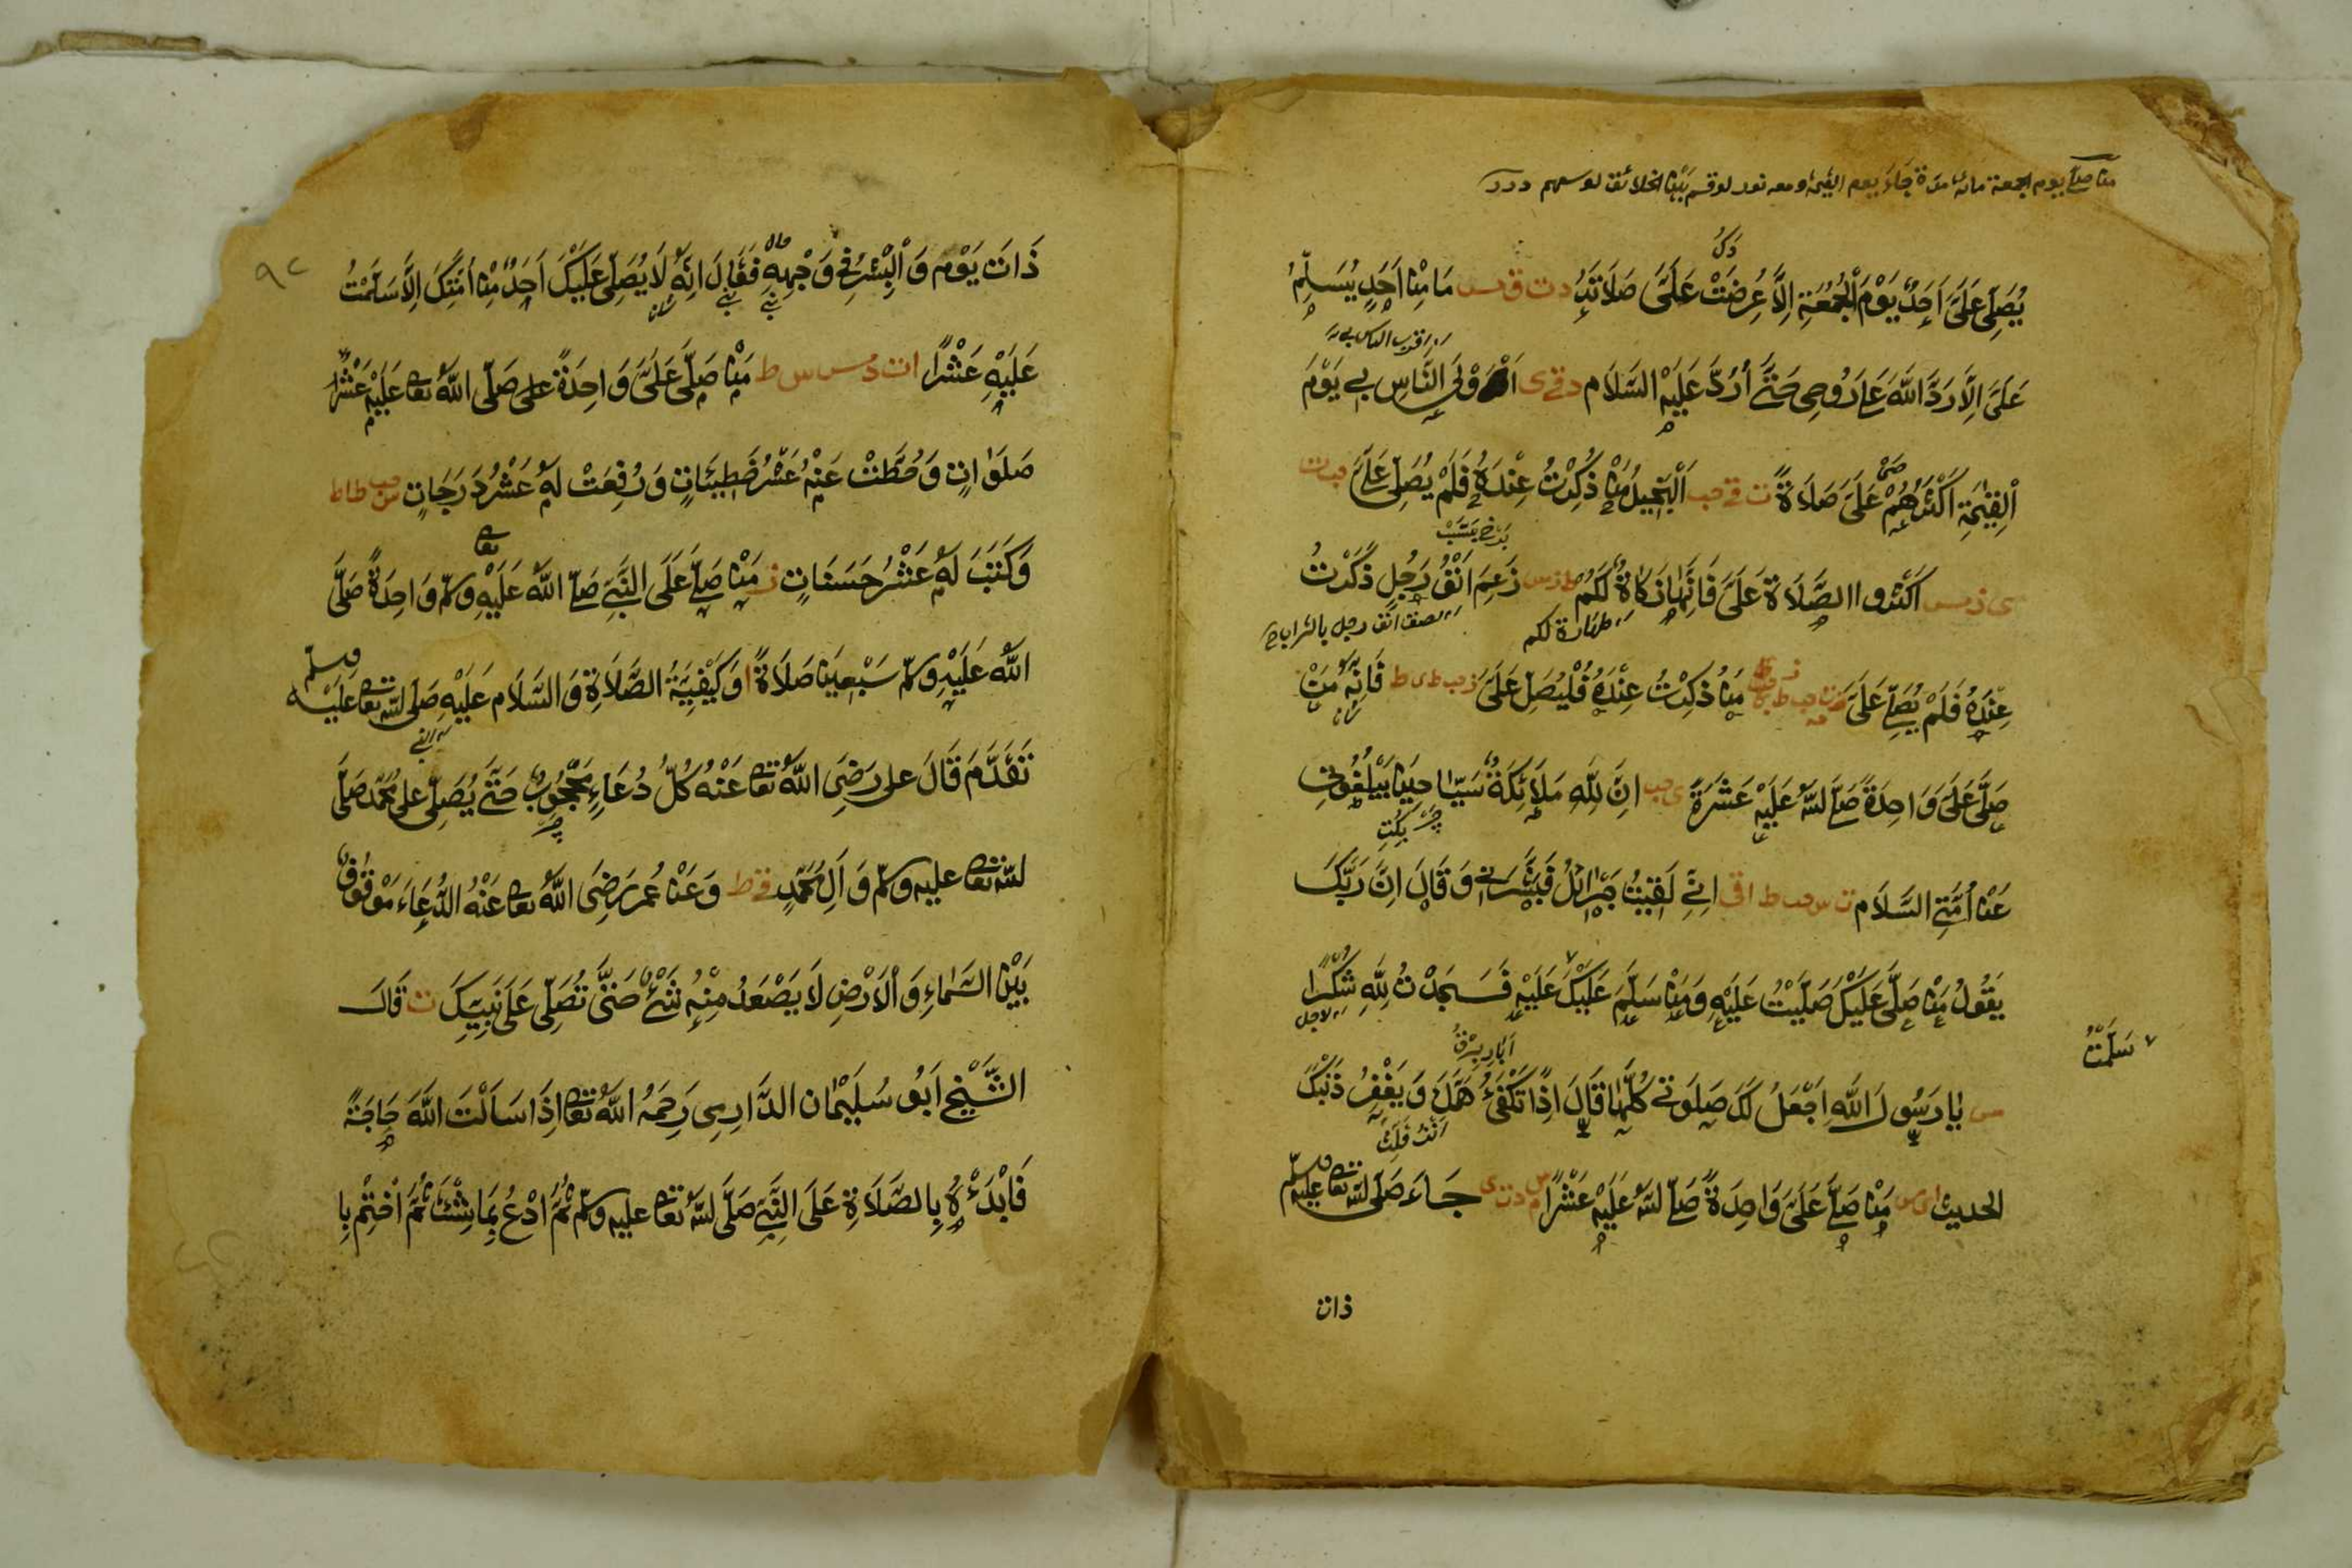 من صلى يوم الجمعة مائة مرة جاء يوم القيمة ومعه نور لو قسم بين الخلائق لوسعهم
يُصَلِّي عَلَيَّ اَحَدٌ يَوْمَ الْجُمُعَةِ اِلَّا عُرِضَتْ عَلَيَّ صَلَاتُهُ د ت ق مس مَا مِنْ اَحَدٍ يُسَلِّمُ
عَلَيَّ اِلَّا رَدَّ اللّٰهُ عَلَيَّ رُوحِي حَتّٰى أَرُدَّ عَلَيْهِ السَّلَام د ق ى اَوْلَى النَّاسِ بِي يَوْمَ
اقرب الناس بى
الْقِيٰمَةِ اَكْثَرُهُمْ عَلَيَّ صَلَاةً ت ق حب اَلْبَخِيلُ مَنْ ذُكِرْتُ عِنْدَهُ فَلَمْ يُصَلِّ عَلَيَّ حب ت
ى ز مس اَكْثِرُوا الصَّلَاةَ عَلَيَّ فَاِنَّهَا زَكَاةٌ لَكُمْ زَعِمَ اَنْفُ رَجُلٍ ذُكِرْتُ
طهارة لكم
لصق انف رجل بالتراب
عِنْدَهُ فَلَمْ يُصَلِّ عَلَيَّ مَنْ ذُكِرْتُ عِنْدَهُ فَلْيُصَلِّ عَلَيَّ فَاِنَّهُ مَنْ
صَلَّى عَلَيَّ وَاحِدَةً صَلَّى اللّٰهُ عَلَيْهِ عَشَرَةً ى حب اِنَّ لِلّٰهِ مَلَائِكَةً سَيَّاحِينَ يَبْلُغُونِ
عَنْ أُمَّتِي السَّلَام ت س حب ط اِنِّي لَقِيتُ جَبْرَائِلَ فَبَشَّرَنِي وَقَالَ اِنَّ رَبَّكَ
يَقُولُ مَنْ صَلَّى عَلَيْكَ صَلَّيْتُ عَلَيْهِ وَمَنْ سَلَّمَ عَلَيْكَ عَلَيْهِ فَسَجَدْتُ لِلّٰهِ شُكْرًا
سَلَّمْتُ
مس يَا رَسُولَ اللّٰهِ اَجْعَلُ لَكَ صَلَوٰتِي كُلَّهَا قَالَ اِذًا تُكْفٰى هَمَّكَ وَيَغْفِرُ ذَنْبَكَ
الحديث مَنْ صَلَّى عَلَيَّ وَاحِدَةً صَلَّى اللّٰهُ عَلَيْهِ عَشْرًا م د ت س جَاءَ صَلَّى اللّٰه تعا عليه وسلم
ذات
٩٢
ذَاتَ يَوْمٍ وَالْبِشْرُ فِي وَجْهِهِ فَقَالَ اِنَّهُ لَا يُصَلِّي عَلَيْكَ اَحَدٌ مِنْ اُمَّتِكَ اِلَّا سَلَّمْتُ
عَلَيْهِ عَشْرًا مَنْ صَلَّى عَلَيَّ وَاحِدَةً صَلَّى اللّٰهُ تعا عَلَيْهِ عَشْرَ
صَلَوَاتٍ وَحُطَّتْ عَنْهُ عَشْرُ خَطِيئَاتٍ وَرُفِعَتْ لَهُ عَشْرُ دَرَجَاتٍ س حب ط
وَكَتَبَ لَهُ عَشْرُ حَسَنَاتٍ مَنْ صَلَّى عَلَى النَّبِيِّ صَلَّى اللّٰهُ عَلَيْهِ وسلم وَاحِدَةً صَلَّى
اللّٰهُ عَلَيْهِ وسلم سَبْعِينَ صَلَاةً ا وَكَيْفِيَّةُ الصَّلَاةِ وَالسَّلَامِ عَلَيْهِ صَلَّى اللّٰه تعا عليه وسلم
تَقَدَّمَ قَالَ على رَضِيَ اللّٰهُ تعا عَنْهُ كُلُّ دُعَاءٍ مَحْجُوبٌ حَتّٰى يُصَلِّي على مُحَمَّد صَلَّى
اللّٰه تعا عليه وسلم وَاٰلِ مُحَمَّدٍ وَعَنْ عُمَر رَضِيَ اللّٰهُ تعا عَنْهُ الدُّعَاءُ مَوْقُوفٌ
بَيْنَ السَّمَاءِ وَالْاَرْضِ لَا يَصْعَدُ مِنْهُ شَيْءٌ حَتّٰى تُصَلِّي عَلَى نَبِيِّكَ ت قَالَ
الشَّيْخُ اَبُو سُلَيْمٰان الدَّارِي رَحِمَهُ اللّٰهُ تعا اِذَا سَاَلْتَ اللّٰهَ حَاجَةً
فَابْدَءْهُ بِالصَّلَاةِ عَلَى النَّبِيِّ صَلَّى اللّٰهُ تعا عليه وسلم ثُمَّ ادْعُ بِمَا شِئْتَ ثُمَّ اخْتِمْ بِا